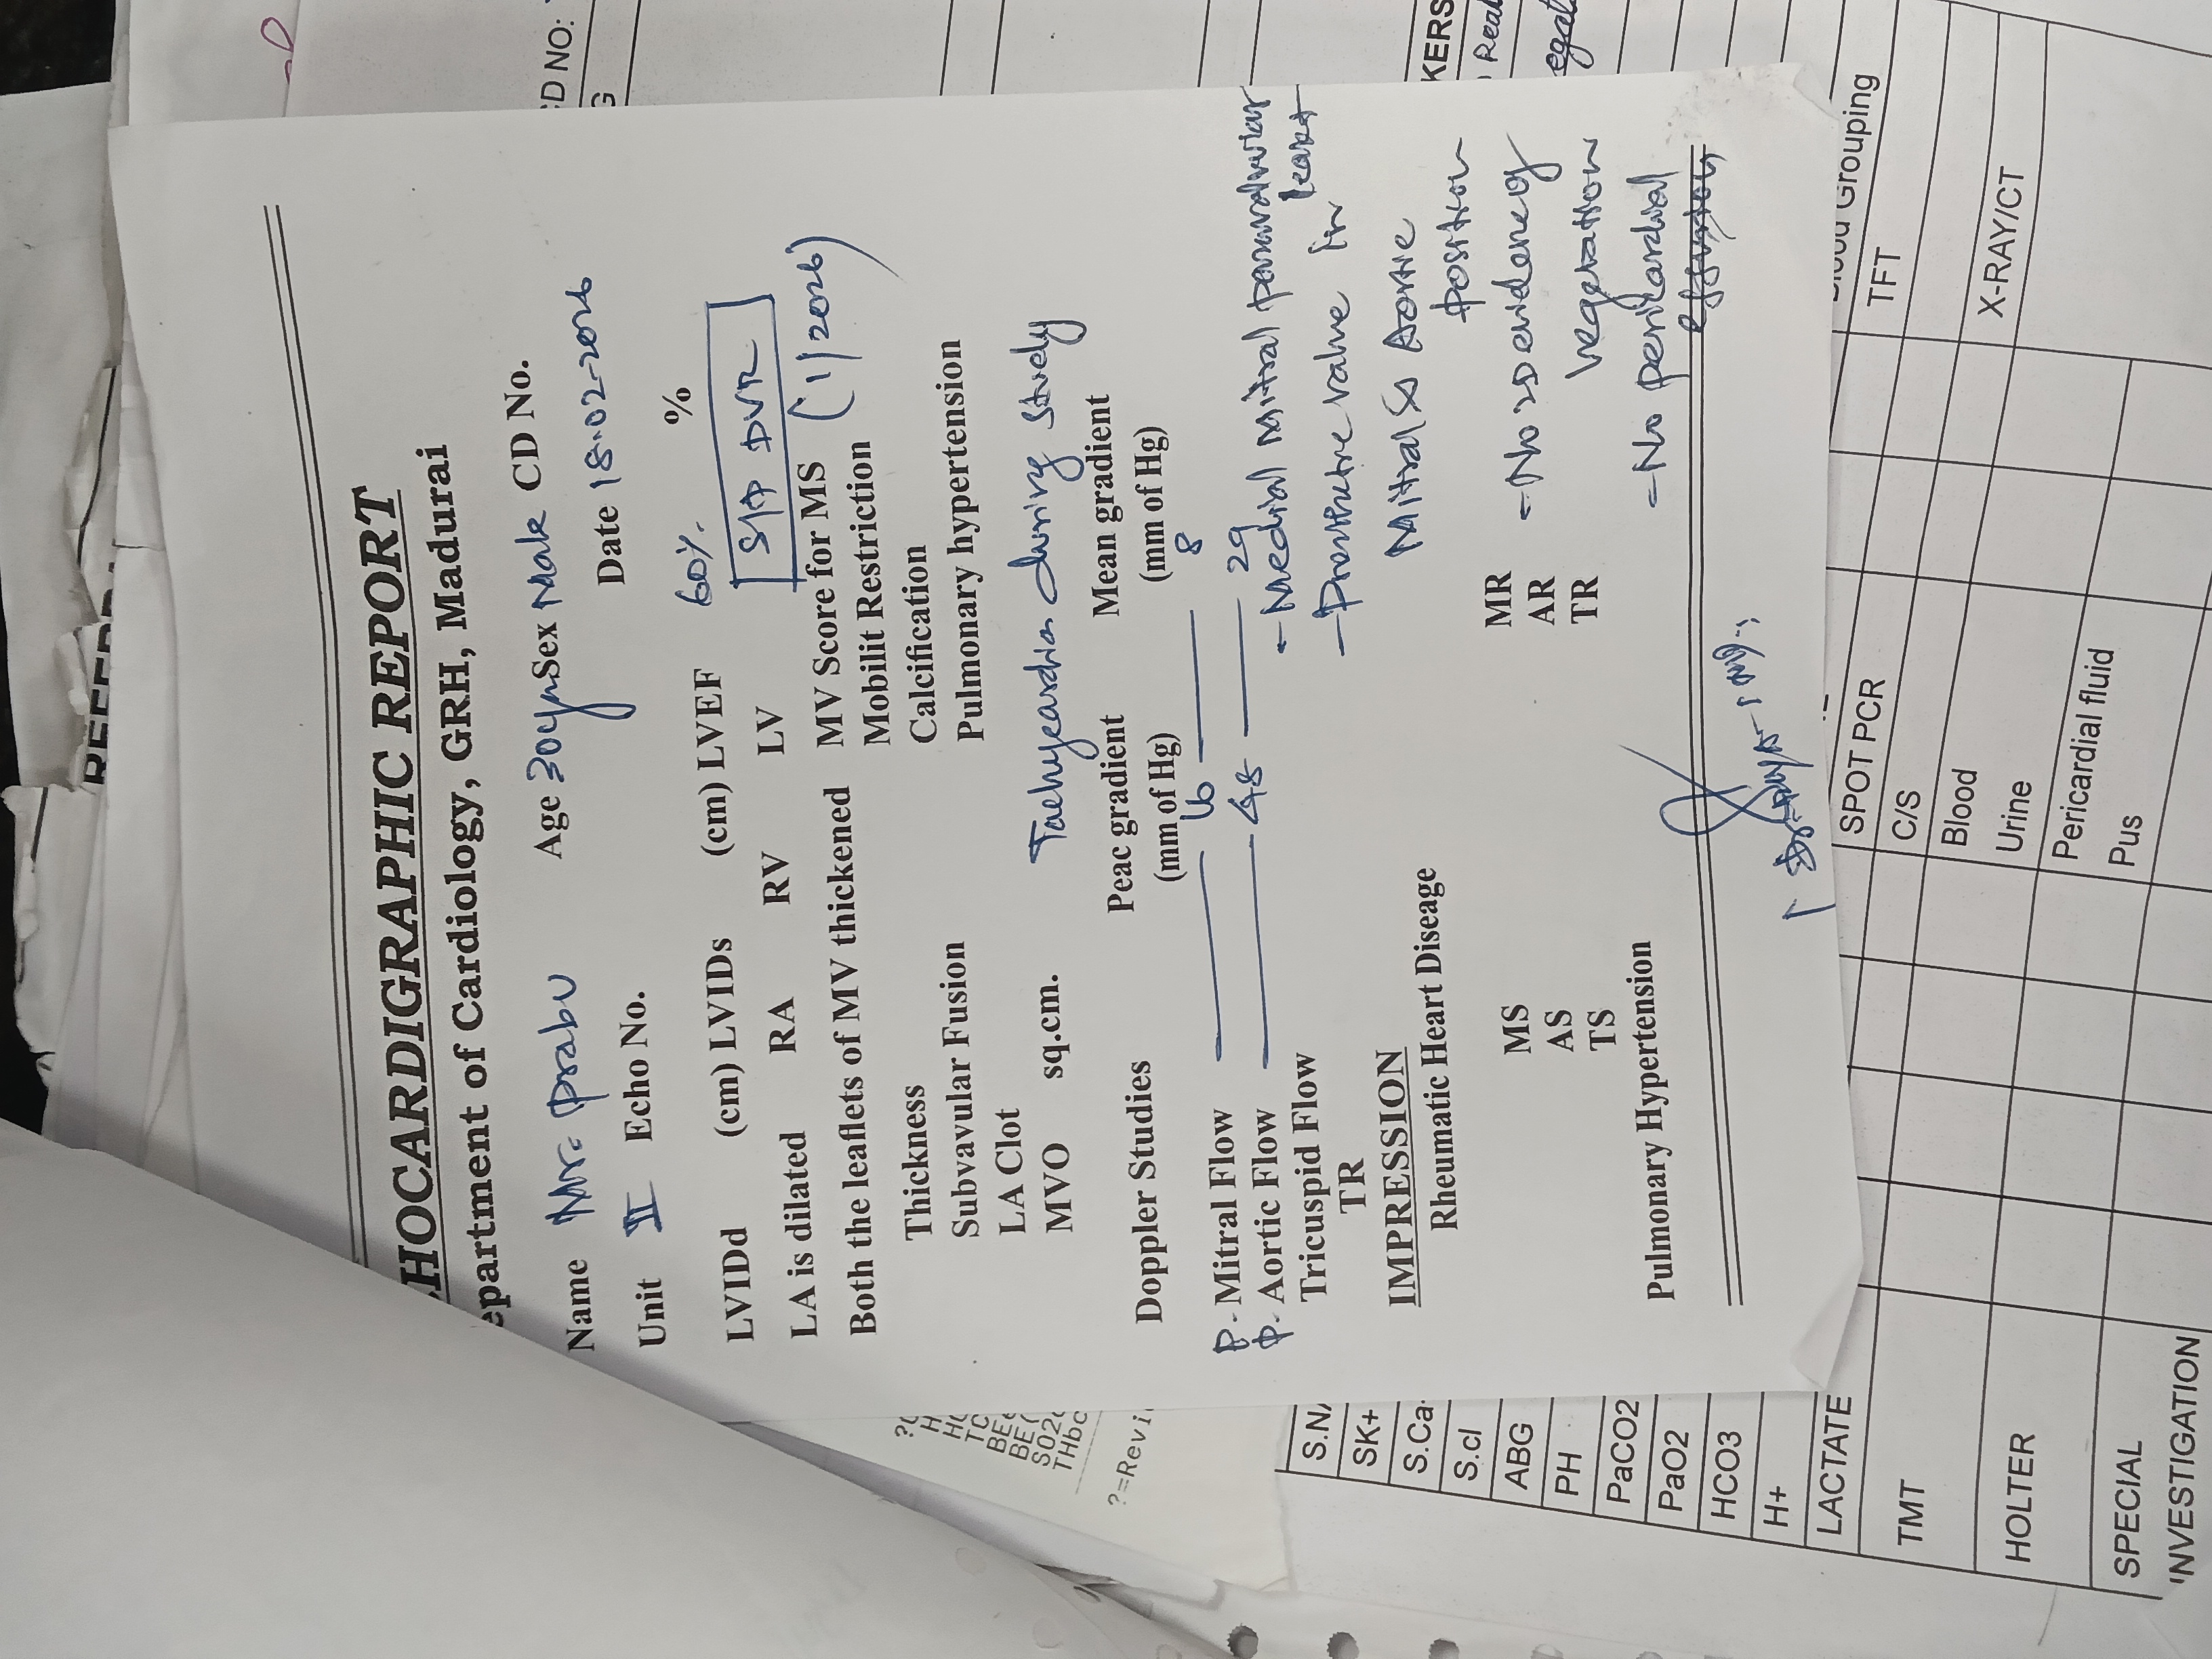 ECHOCARDIGRAPHIC REPORT
Department of Cardiology, GRH, Madurai
Name Mr. Prabu Age 30yrs Sex Male CD No.
Unit II Echo No. Date 18-02-2026
LVIDd (cm) LVIDs (cm) LVEF 60% %
LA is dilated RA RV LV S/P DVR
Both the leaflets of MV thickened MV Score for MS (1/2026)
Mobilit Restriction
Thickness Calcification
Subvavular Fusion Pulmonary hypertension
LA Clot
MVO sq.cm. Tachycardia during study
Doppler Studies Peac gradient Mean gradient
(mm of Hg) (mm of Hg)
P- Mitral Flow 16 8
P- Aortic Flow 48 29
Tricuspid Flow - Medial mitral paravalvular leak+
TR - Prosthetic valve in
IMPRESSION Mitral & Aortic
Rheumatic Heart Diseage position
MS MR - No 2D evidence of
AS AR vegetation
TS TR
Pulmonary Hypertension - No pericardial
effusion
CD NO:
KERS
Blood Grouping
TFT
X-RAY/CT
SPOT PCR
C/S
Blood
Urine
Pericardial fluid
Pus
SK+
S.cl
ABG
PH
PaCO2
PaO2
HCO3
H+
LACTATE
TMT
HOLTER
SPECIAL
INVESTIGATION